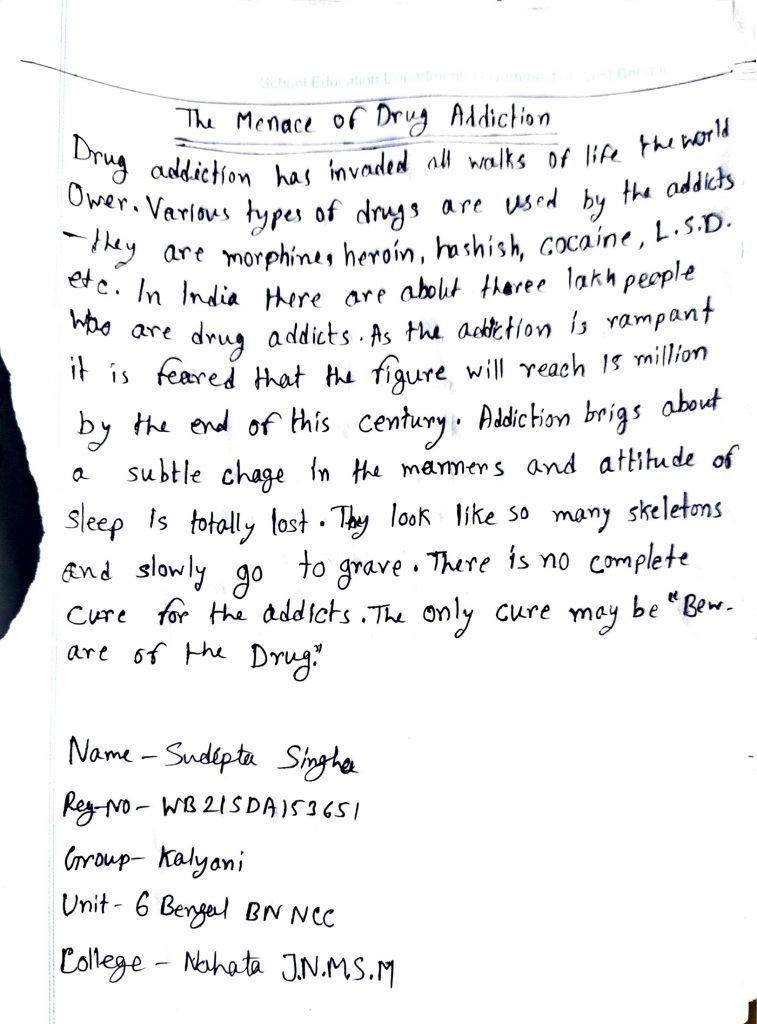 School Education Department, Government of West Bengal
The Menace of Drug Addiction
Drug addiction has invaded all walks of life the world
Ower. Various types of drugs are used by the addicts
- they are morphine, heroin, hashish, cocaine, L.S.D.
etc. In India there are about theree lakh people
who are drug addicts. As the addiction is rampant
it is feared that the figure will reach 15 million
by the end of this century. Addiction brigs about
a subtle chage in the manners and attitude of
sleep is totally lost. They look like so many skeletons
and slowly go to grave. There is no complete
cure for the addicts. The only cure may be "Bew-
are of the Drug."
Name - Sudipta Singha
Reg-No - WB21SDA153651
Group - Kalyani
Unit - 6 Bengal BN NCC
College - Nahata J.N.M.S.M